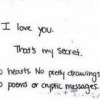 I love you.
That's my secret.
o hearts. No pretty drawings
o poems or cryptic messages.